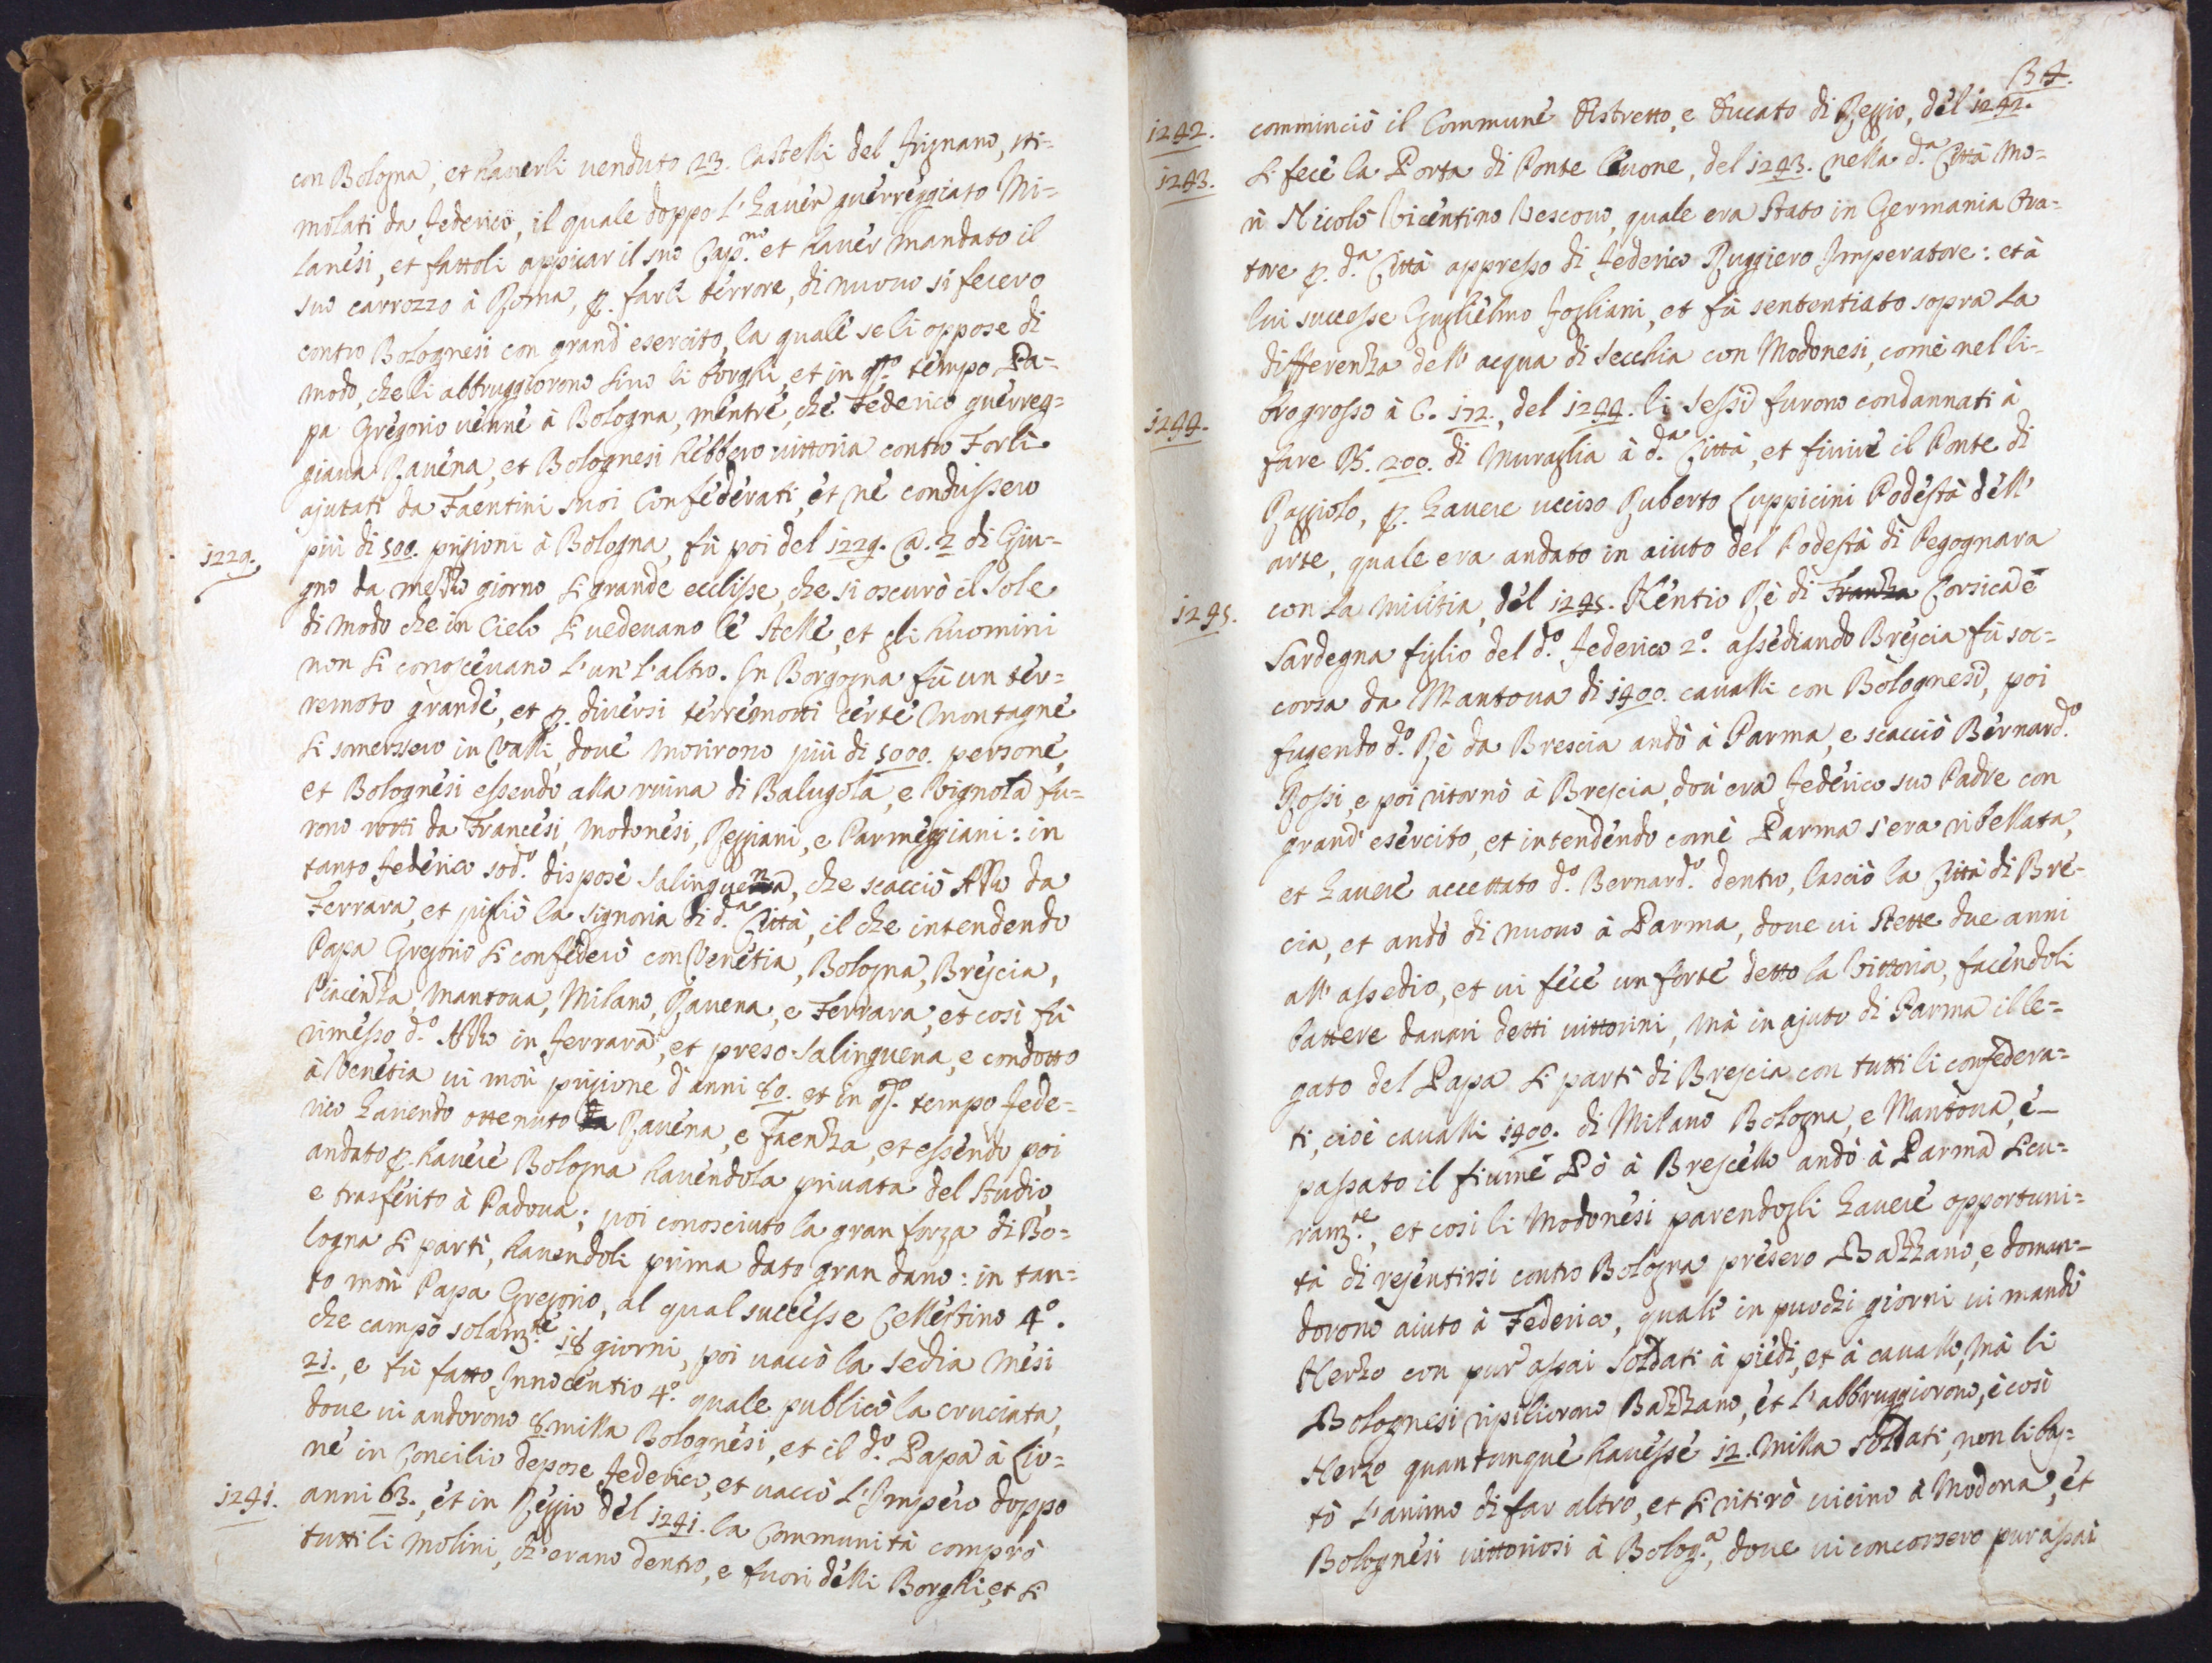 con Bologna, et haverli venduto 23. Castelli del Frignano, sti=
molati da Federico, il quale doppo l'haver guerreggiato Mi=
lanesi, et fattoli appicar il suo Cap.no et haver mandato il
suo carrozzo à Roma, p. farli terrore, di nuovo si fecero
contro Bolognesi con grand esercito, la quale se li oppose di
modo, che li abbruggiorono sino li borghi, et in q.o tempo Pa=
pa Gregorio venne à Bologna, mentre, che Federico guerreg=
giava Ravena, et Bolognesi hebbero vittoria contro Forlì
ajutati da Faentini suoi Confederati, et ne condussero
1229. più di 500. prigioni à Bologna, fù poi del 1229. a. 2 di Giu=
gno da mezzo giorno si grande ecclisse, che si oscurò il Sole
di modo che in Cielo si vedevano le stelle, et gli huomini
non si conoscevano l'un'l'altro. In Borgogna fù un ter=
remoto grande, et p. diversi terremotti certe montagne
si somerssero in Valli, dove morirono più di 5000. persone,
et Bolognesi essendo alla ruina di Balugola, e Vignola fu=
rono rotti da Francesi, Modonesi, Reggiani, e Parmeggiani: in
tanto Federico sod.o dispose Salinguena, che scacciò Azzo da
Ferrara, et pigliò la signoria di d.a Città, il che intendendo
Papa Gregorio si confederò con Venetia, Bologna, Brescia,
Piacenza, Mantova, Milano, Ravena, e Ferrara, et così fù
rimesso d.o Azzo in Ferrara, et preso Salinguena, e condotto
à Venetia vi morì prigione d'anni 80. et in q.o tempo Fede=
rico havendo ottenuto Ravena, e Faenza, et essendo poi
andato p. havere Bologna havendola privata del Studio
e trasferito à Padova; poi conosciuto la gran forza di Bo=
logna si partì, havendoli prima dato gran dano: in tan=
to morì Papa Gregorio, al qual successe Cellestino 4.o
che campò solam.te 18 giorni, poi vaccò la sedia mesi
21., e fù fatto Innocentio 4.o quale publicò la cruciata,
dove vi andorono 8 milla Bolognesi, et il d.o Papa à Lio=
ne in Concilio depose Federico, et vaccò l'Impero doppo
1241. anni 63., et in Reggio del 1241. la Communità comprò
tutti li molini, ch'erano dentro, e fuori delli Borghi, et si
34.
1242. comminciò il Commune distretto, e ducato di Reggio, del 1242.
1243. si fece la Porta di Ponte Levone, del 1243. nella d.a Città mo=
rì Nicolò Vicentino Vescovo, quale era stato in Germania Ora=
tore p. d.a Città appresso di Federico Ruggiero Imperatore: et à
lui successe Guglielmo Fogliani, et fù sententiato sopra la
differenza dell'acqua di Secchia con Modonesi, come nel li=
1244. bro grosso à C. 172., del 1244. li Sessi furono condannati à
fare B. 200. di muraglia à d.a Città, et finire il Ponte di
Razziolo, p. havere ucciso Ruberto Luppicini Podestà dell'
arte, quale era andato in aiuto del Podestà di Pegognara
1245. con la militia, del 1245. Hentio Rè di Franza Corsica e
Sardegna figlio del d.o Federico 2.o assediando Brescia fù soc=
corsa da Mantova di 1400. cavalli con Bolognesi, poi
fugendo d.o Rè da Brescia andò à Parma, e scacciò Bernard.o
Rossi, e poi ritornò à Brescia, dov'era Federico suo Padre con
grand'esercito, et intendendo come Parma s'era ribellata,
et havere accettato d.o Bernard.o dentro, lasciò la Città di Bre=
cia, et andò di nuovo à Parma, dove vi stette due anni
all'assedio, et vi fece un forte detto la Vittoria, facendoli
battere danari detti vittorini, mà in ajuto di Parma il le=
gato del Papa si partì di Brescia con tutti li confedera=
ti, cioè cavalli 1400. di Milano Bologna, e Mantova, e
passato il fiume Pò à Brescello andò à Parma sicu=
ram.te, et così li Modonesi parendogli havere opportuni=
tà di resentirsi contro Bologna presero Bazzano, e doman=
dorono aiuto à Federico, quale in puochi giorni vi mandò
Henzo con pur assai soldati à piedi, et à cavallo, mà li
Bolognesi ripiliorono Bazzano, et l'abbruggiorono, e così
Henzo quantunque havesse 12. milla soldati, non li bas=
tò l'animo di far altro, et si ritirò vicino à Modona, et
Bolognesi vittoriosi à Bolog.a, dove vi concorsero pur assai